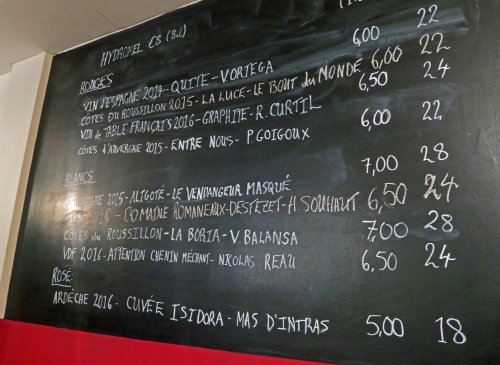 HYDROMEL €8 (8cl)
ROUGES
VIN D'ESPAGNE 2014 - QUITE - VORTEGA 6,00 22
CÔTES DU ROUSSILLON 2015 - LA LUCE - LE BOUT du MONDE 6,00 22
VIN de TABLE FRANÇAIS 2016 - GRAPHITE - R. CURTIL 6,50 24
CÔTES d'AUVERGNE 2015 - ENTRE NOUS - P. GOIGOUX 6,00 22
BLANCS
2015 - ALIGOTÉ - LE VENDANGEUR MASQUÉ 7,00 28
- DOMAINE ROMANEAUX-DESTEZET - H. SOUHAUT 6,50 24
CÔTES du ROUSSILLON - LA BORIA - V. BALANSA 7,00 28
VDF 2016 - ATTENTION CHENIN MÉCHANT - NICOLAS REAU 6,50 24
ROSÉ
ARDÈCHE 2016 - CUVÉE ISIDORA - MAS D'INTRAS 5,00 18